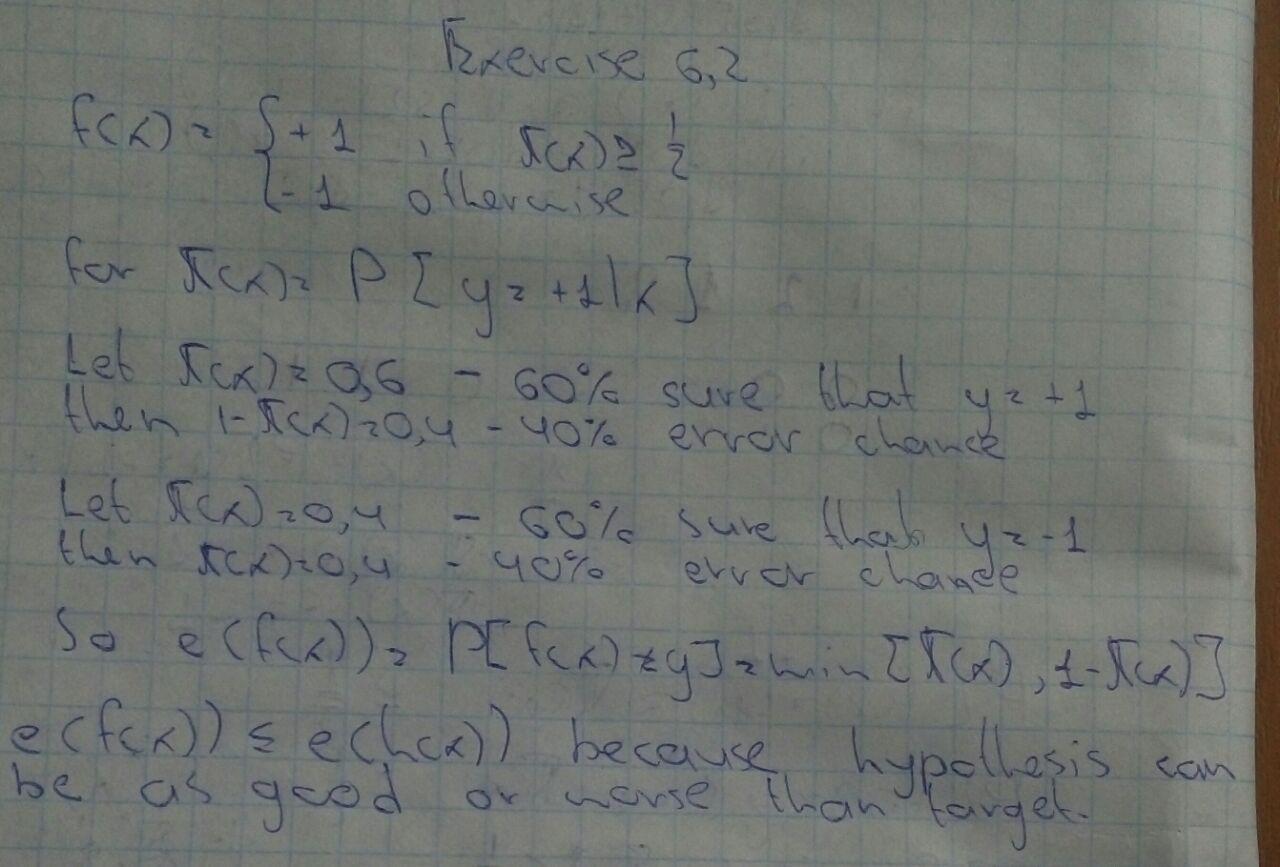 Exercise 6,2
f(x) = { +1 if π(x) ≥ 1/2
-1 otherwise
for π(x) = P [ y = +1 | x ]
Let π(x) = 0,6 - 60% sure that y = +1
then 1-π(x) = 0,4 - 40% error chance
Let π(x) = 0,4 - 60% sure that y = -1
then π(x) = 0,4 - 40% error chance
So e(f(x)) = P[f(x) ≠ y] = min [π(x), 1-π(x)]
e(f(x)) ≤ e(h(x)) because hypothesis can
be as good or worse than target.